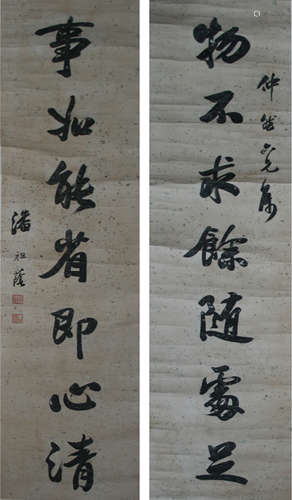 仲笙六兄屬
物不求餘隨處足
事如能省即心清
潘祖蔭